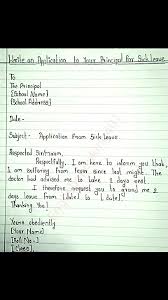 Write an Application to Your Principal for Sick leave.
To
The Principal
[School Name]
[School Address]
Date -
Subject - Application From Sick leave.
Respected Sir/mam,
Respectfully, I am here to inform you that,
I am suffering from fever since last night. The
doctor had advised me to take 2 days rest.
I therefore request you to grand me 2
days leave from [date] to [date]
Thanking You!
Yours obediently
[Your Name]
[Roll No.]
[Class]